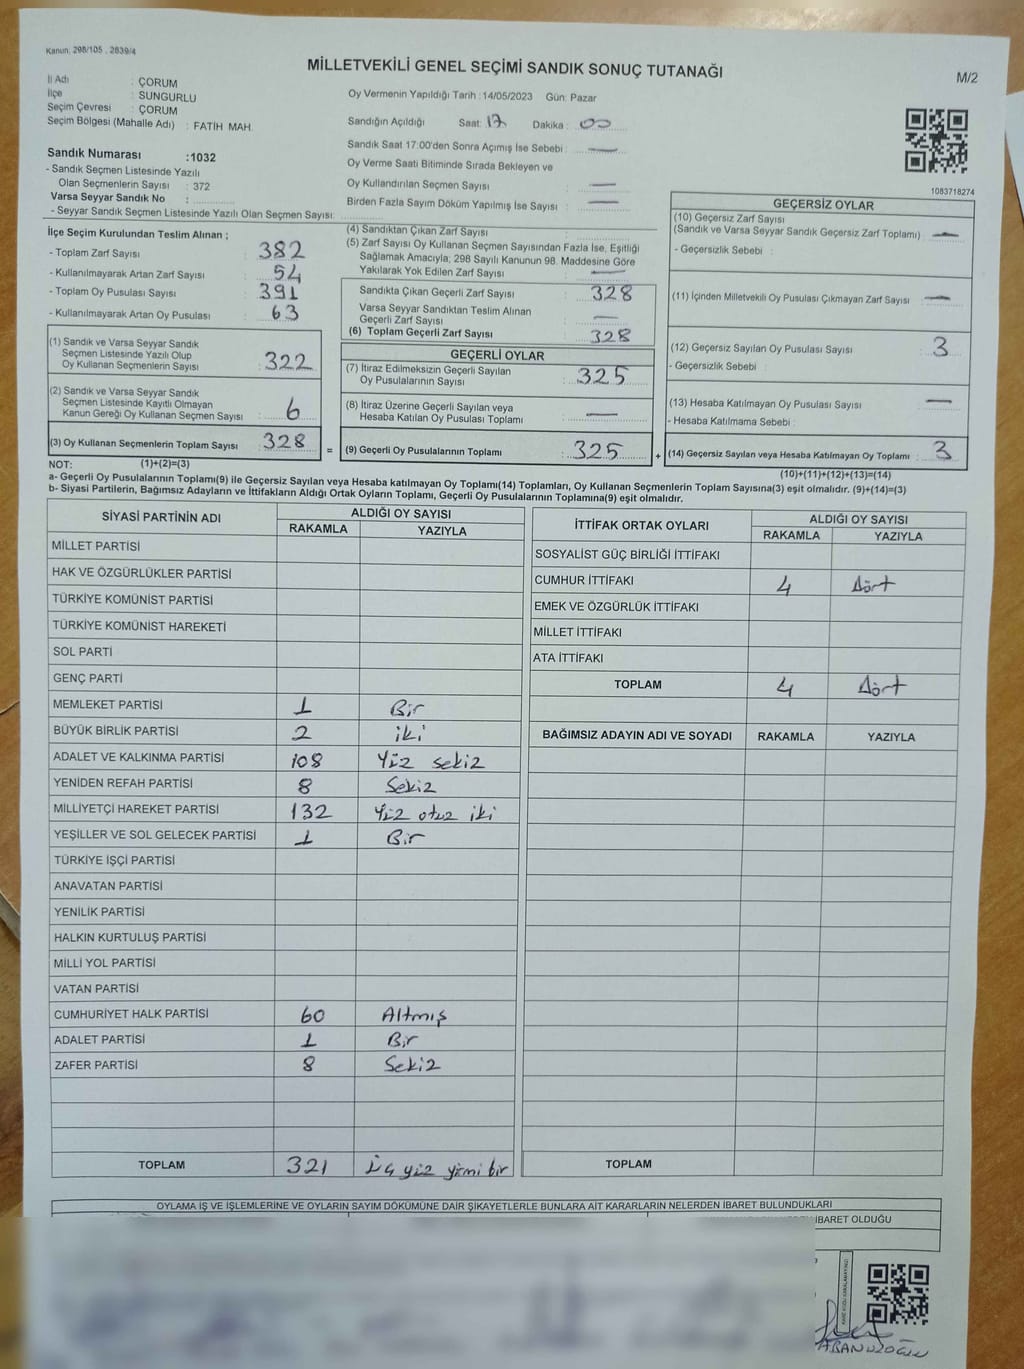 Kanun: 298/105 , 2839/4
MİLLETVEKİLİ GENEL SEÇİMİ SANDIK SONUÇ TUTANAĞI
M/2
İl Adı : ÇORUM
İlçe : SUNGURLU
Seçim Çevresi : ÇORUM
Seçim Bölgesi (Mahalle Adı) : FATİH MAH.
Sandık Numarası :1032
- Sandık Seçmen Listesinde Yazılı
Olan Seçmenlerin Sayısı : 372
Varsa Seyyar Sandık No :
- Seyyar Sandık Seçmen Listesinde Yazılı Olan Seçmen Sayısı:
Oy Vermenin Yapıldığı Tarih :14/05/2023 Gün: Pazar
Sandığın Açıldığı Saat: 17 Dakika : 00
Sandık Saat 17:00'den Sonra Açımış İse Sebebi : —
Oy Verme Saati Bitiminde Sırada Bekleyen ve
Oy Kullandırılan Seçmen Sayısı : —
Birden Fazla Sayım Döküm Yapılmış İse Sayısı : —
1083718274
İlçe Seçim Kurulundan Teslim Alınan ;
- Toplam Zarf Sayısı : 382
- Kullanılmayarak Artan Zarf Sayısı : 54
- Toplam Oy Pusulası Sayısı : 391
- Kullanılmayarak Artan Oy Pusulası : 63
(1) Sandık ve Varsa Seyyar Sandık
Seçmen Listesinde Yazılı Olup
Oy Kullanan Seçmenlerin Sayısı : 322
(2) Sandık ve Varsa Seyyar Sandık
Seçmen Listesinde Kayıtlı Olmayan
Kanun Gereği Oy Kullanan Seçmen Sayısı : 6
(3) Oy Kullanan Seçmenlerin Toplam Sayısı : 328
(4) Sandıktan Çıkan Zarf Sayısı :
(5) Zarf Sayısı Oy Kullanan Seçmen Sayısından Fazla İse, Eşitliği
Sağlamak Amacıyla; 298 Sayılı Kanunun 98. Maddesine Göre
Yakılarak Yok Edilen Zarf Sayısı : —
Sandıkta Çıkan Geçerli Zarf Sayısı : 328
Varsa Seyyar Sandıktan Teslim Alınan
Geçerli Zarf Sayısı : —
(6) Toplam Geçerli Zarf Sayısı : 328
GEÇERLİ OYLAR
(7) İtiraz Edilmeksizin Geçerli Sayılan
Oy Pusulalarının Sayısı : 325
(8) İtiraz Üzerine Geçerli Sayılan veya
Hesaba Katılan Oy Pusulası Toplamı : —
= (9) Geçerli Oy Pusulalarının Toplamı : 325
GEÇERSİZ OYLAR
(10) Geçersiz Zarf Sayısı
(Sandık ve Varsa Seyyar Sandık Geçersiz Zarf Toplamı) : —
- Geçersizlik Sebebi :
(11) İçinden Milletvekili Oy Pusulası Çıkmayan Zarf Sayısı : —
(12) Geçersiz Sayılan Oy Pusulası Sayısı : 3
- Geçersizlik Sebebi :
(13) Hesaba Katılmayan Oy Pusulası Sayısı : —
- Hesaba Katılmama Sebebi :
+ (14) Geçersiz Sayılan veya Hesaba Katılmayan Oy Toplamı : 3
NOT: (1)+(2)=(3)
(10)+(11)+(12)+(13)=(14)
a- Geçerli Oy Pusulalarının Toplamı(9) ile Geçersiz Sayılan veya Hesaba katılmayan Oy Toplamı(14) Toplamları, Oy Kullanan Seçmenlerin Toplam Sayısına(3) eşit olmalıdır. (9)+(14)=(3)
b- Siyasi Partilerin, Bağımsız Adayların ve İttifakların Aldığı Ortak Oyların Toplamı, Geçerli Oy Pusulalarının Toplamına(9) eşit olmalıdır.
SİYASİ PARTİNİN ADI ALDIĞI OY SAYISI
RAKAMLA YAZIYLA
MİLLET PARTİSİ
HAK VE ÖZGÜRLÜKLER PARTİSİ
TÜRKİYE KOMÜNİST PARTİSİ
TÜRKİYE KOMÜNİST HAREKETİ
SOL PARTİ
GENÇ PARTİ
MEMLEKET PARTİSİ 1 Bir
BÜYÜK BİRLİK PARTİSİ 2 iki
ADALET VE KALKINMA PARTİSİ 108 Yüz sekiz
YENİDEN REFAH PARTİSİ 8 Sekiz
MİLLİYETÇİ HAREKET PARTİSİ 132 Yüz otuz iki
YEŞİLLER VE SOL GELECEK PARTİSİ 1 Bir
TÜRKİYE İŞÇİ PARTİSİ
ANAVATAN PARTİSİ
YENİLİK PARTİSİ
HALKIN KURTULUŞ PARTİSİ
MİLLİ YOL PARTİSİ
VATAN PARTİSİ
CUMHURİYET HALK PARTİSİ 60 Altmış
ADALET PARTİSİ 1 Bir
ZAFER PARTİSİ 8 Sekiz
TOPLAM 321 Üç yüz yirmi bir
İTTİFAK ORTAK OYLARI ALDIĞI OY SAYISI
RAKAMLA YAZIYLA
SOSYALİST GÜÇ BİRLİĞİ İTTİFAKI
CUMHUR İTTİFAKI 4 Dört
EMEK VE ÖZGÜRLÜK İTTİFAKI
MİLLET İTTİFAKI
ATA İTTİFAKI
TOPLAM 4 Dört
BAĞIMSIZ ADAYIN ADI VE SOYADI RAKAMLA YAZIYLA
TOPLAM
OYLAMA İŞ VE İŞLEMLERİNE VE OYLARIN SAYIM DÖKÜMÜNE DAİR ŞİKAYETLERLE BUNLARA AİT KARARLARIN NELERDEN İBARET BULUNDUKLARI
İBARET OLDUĞU